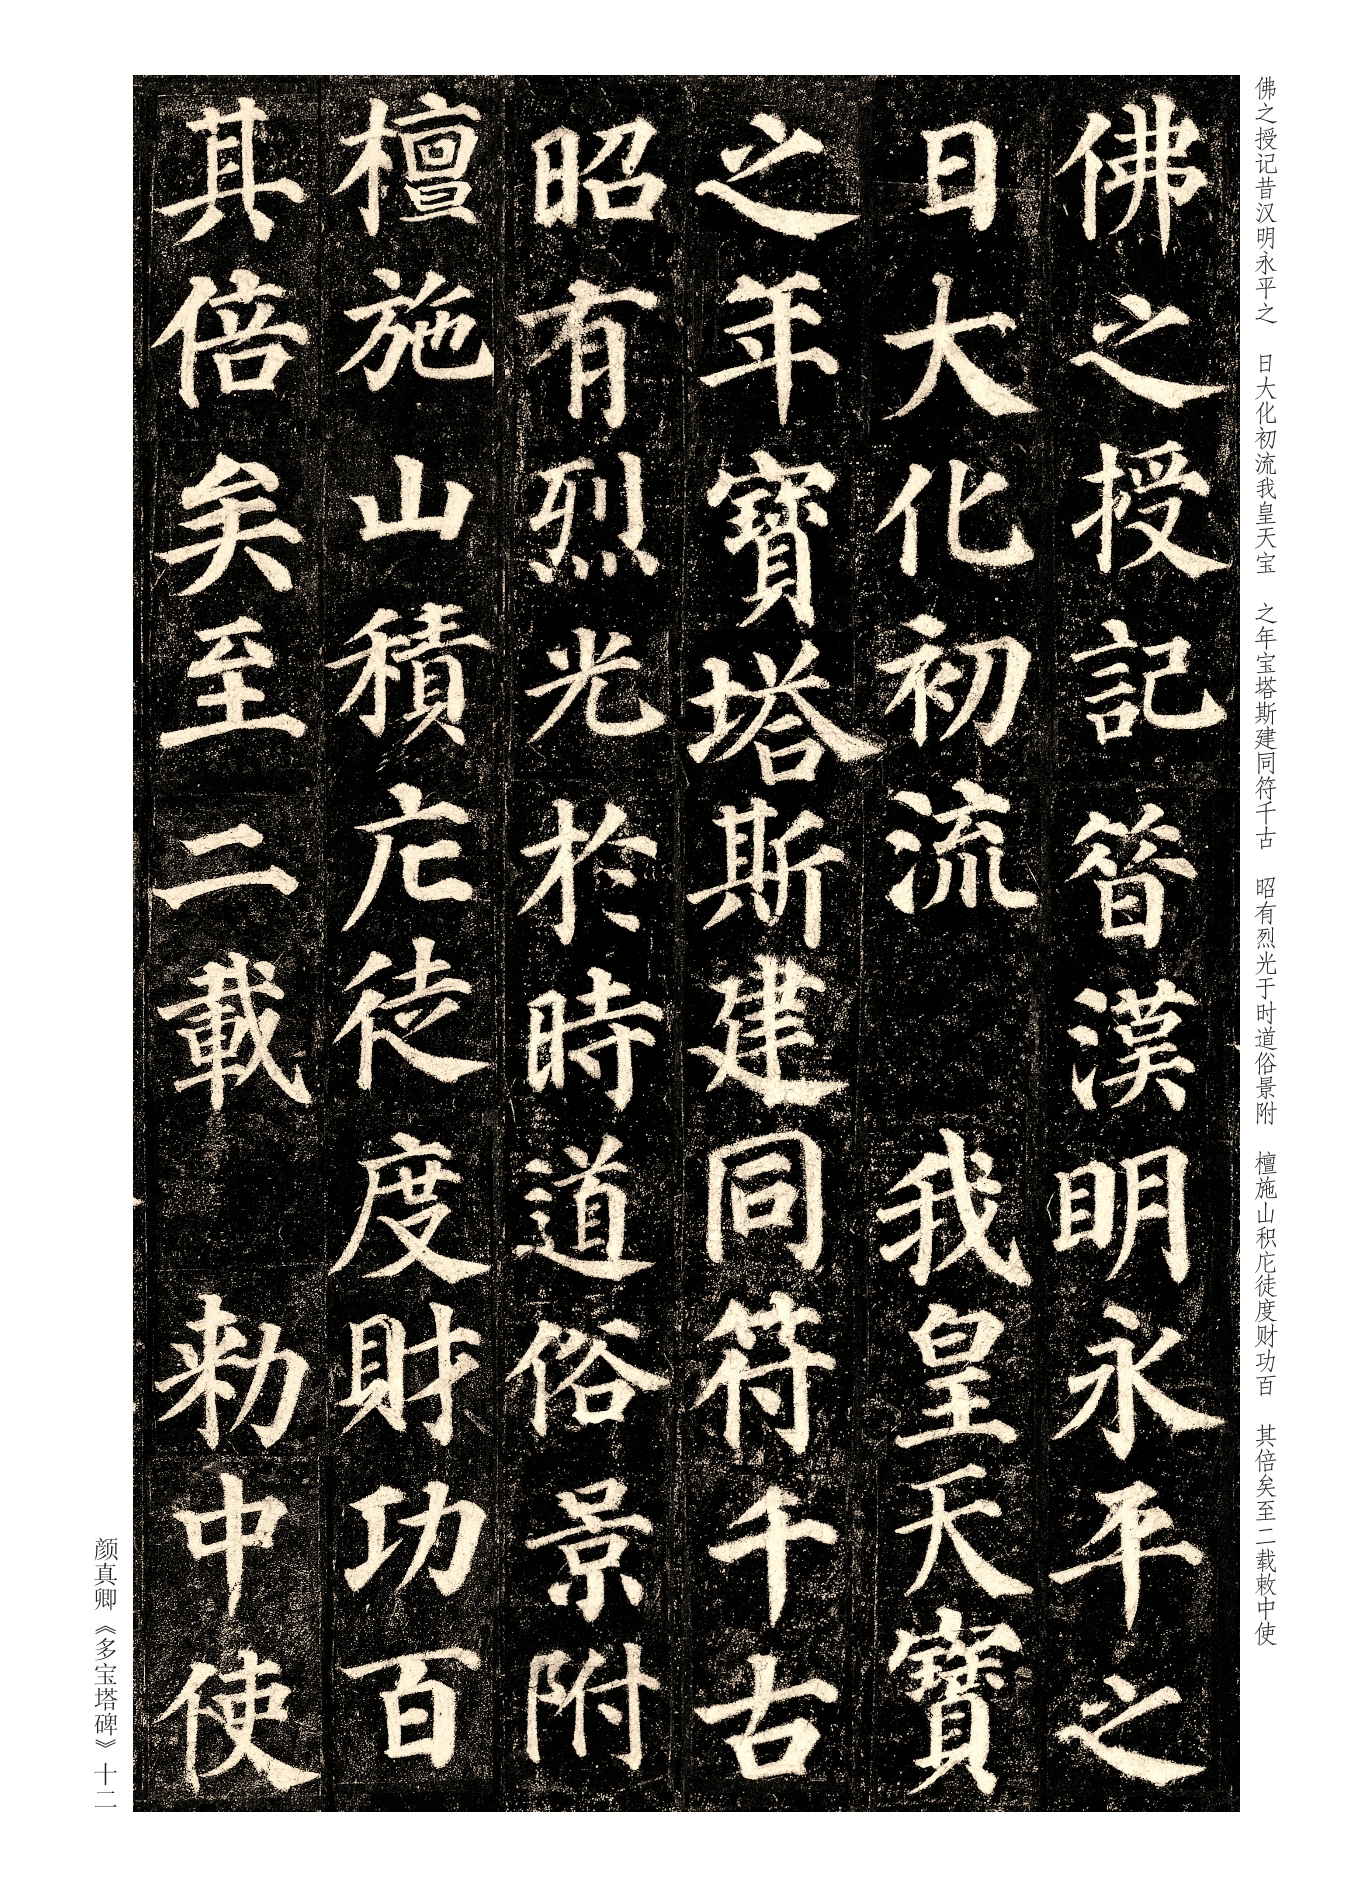 佛之授记昔汉明永平之 日大化初流我皇天宝 之年宝塔斯建同符千古 昭有烈光于时道俗景附 檀施山积庀徒度财功百 其倍矣至二载敕中使
佛之授記昝漢明永平之
日大化初流 我皇天寶
之年寶塔斯建同符千古
昭有烈光於時道俗景附
檀施山積庀徒度財功百
其倍矣至二載 勑中使
颜真卿《多宝塔碑》十二